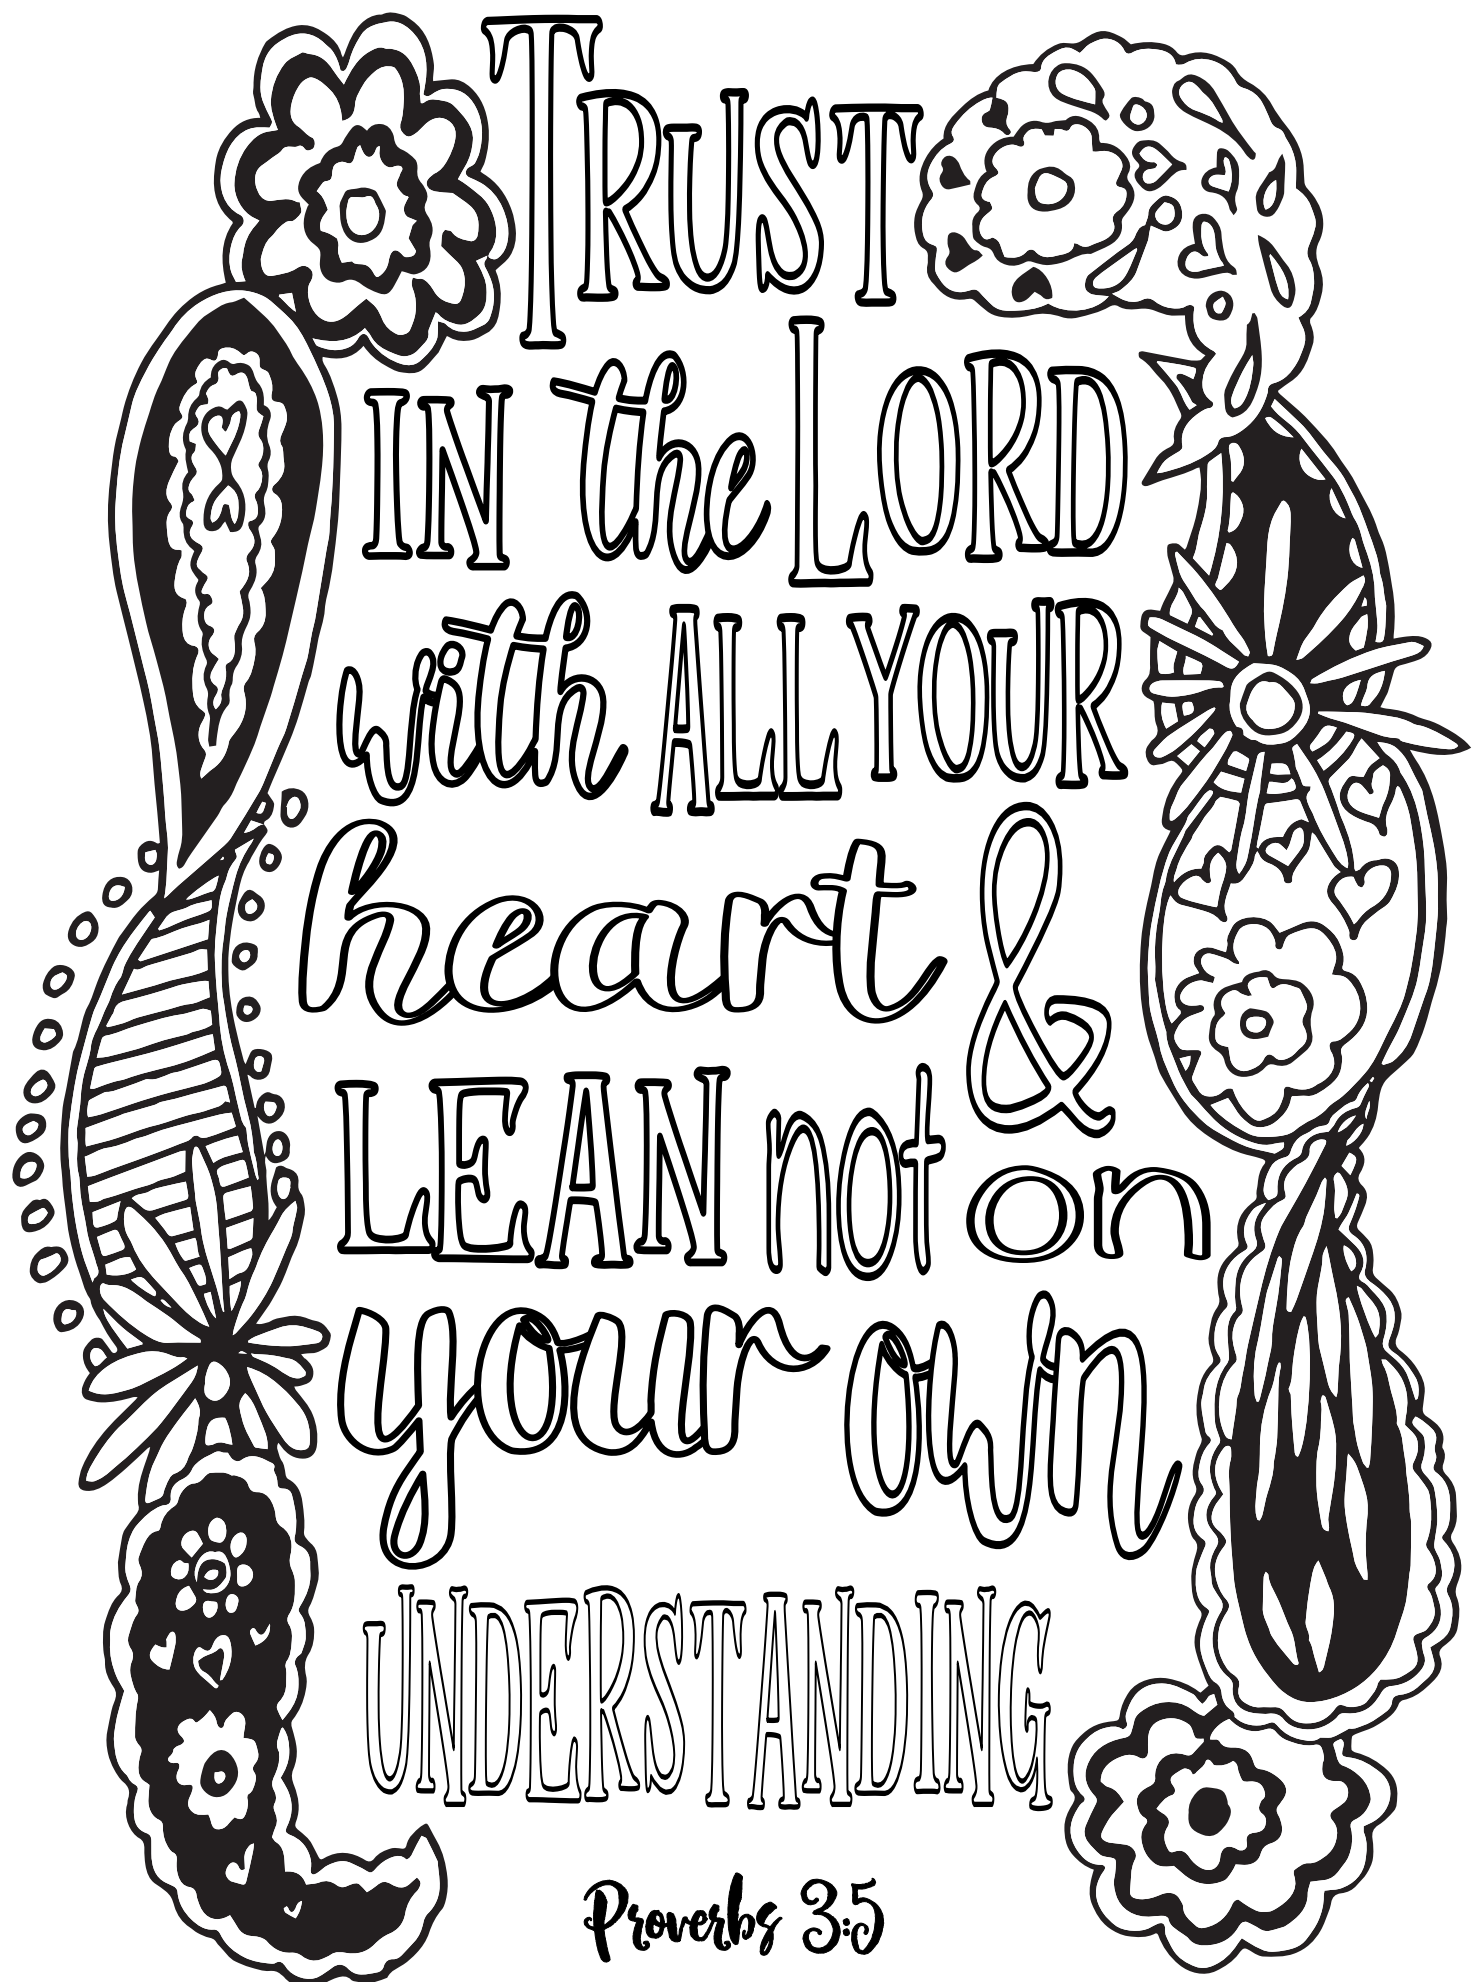 TRUST
IN the LORD
with ALL YOUR
heart &
LEAN not on
your own
UNDERSTANDING
Proverbs 3:5